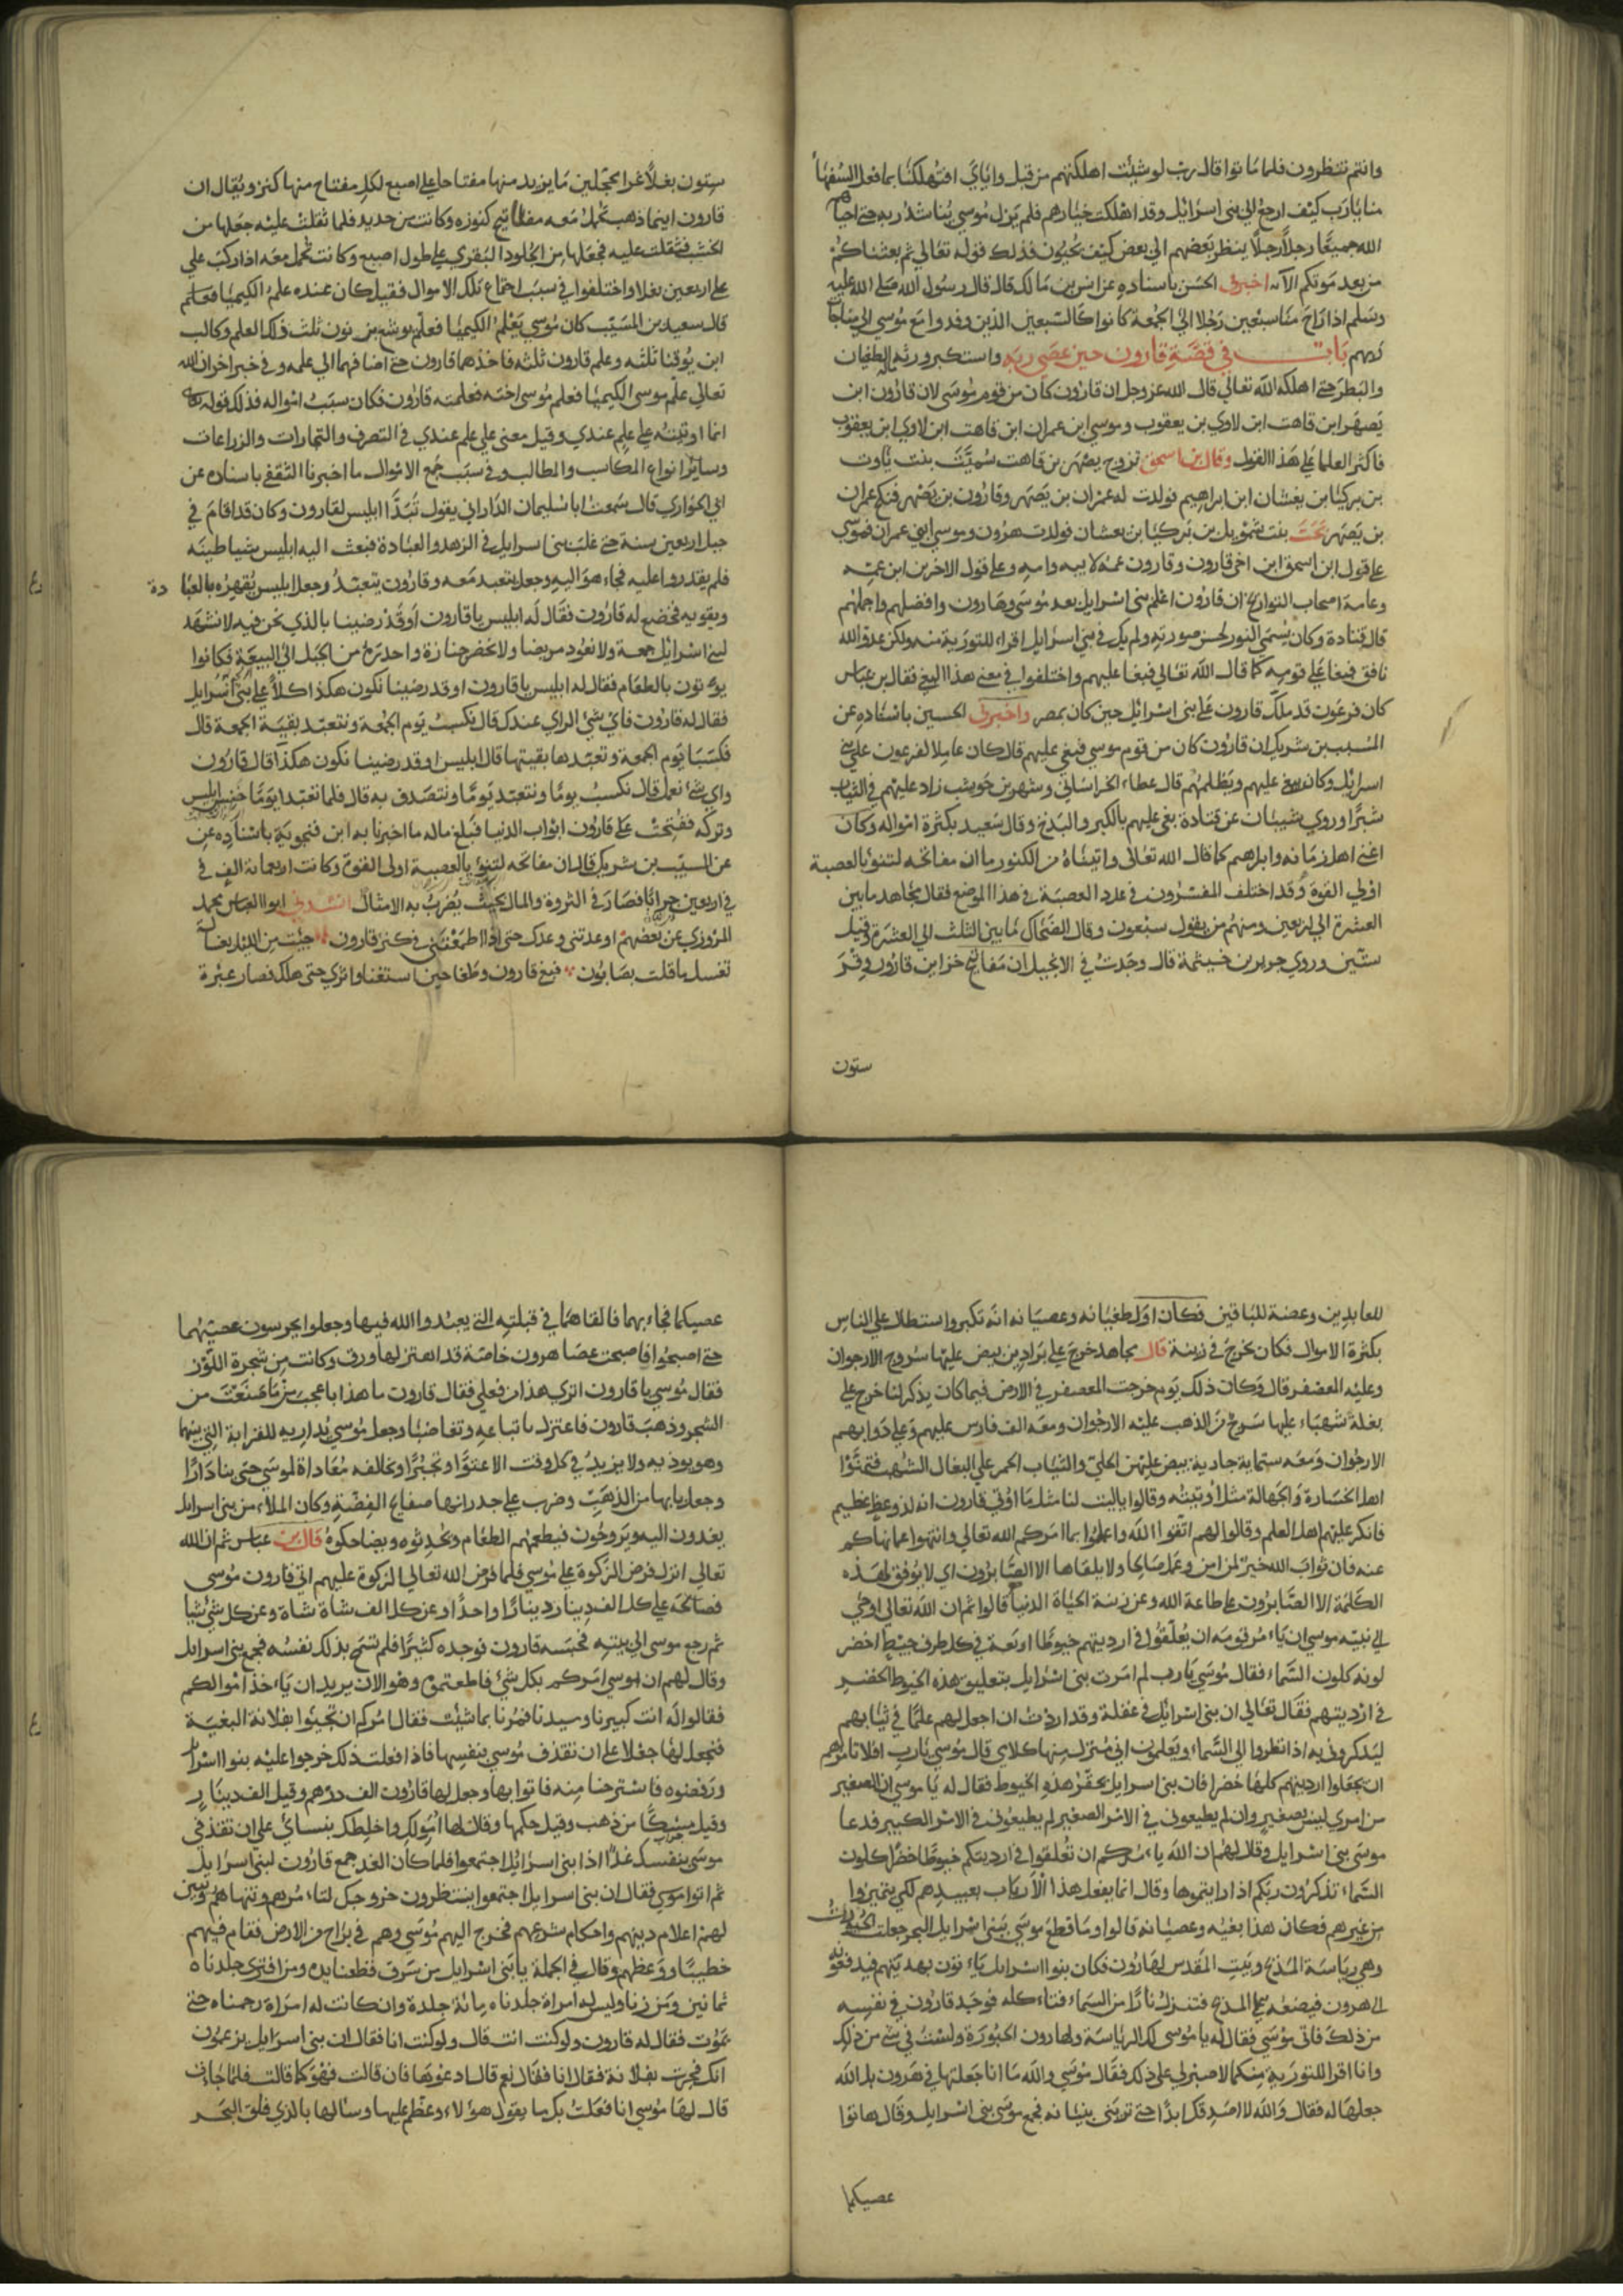 وانتم تنتظرون فلما ماتوا قال رب لو شئت اهلكتهم من قبل واياي افتهلكنا بما فعل السفها
منا يارب كيف ارجع الي بني اسرايل وقد اهلكت خيارهم فلم يزل موسي يناشد ربه حتي احياهم
الله جميعا رجلا رجلا ينظر بعضهم الي بعض كيف يحيون فذلك قوله تعالي ثم بعثناكم
من بعد موتكم الآيه اخبرني الحسن باسناده عن انس بن مالك قال قال رسول الله صلي الله عليه
وسلم اذا راح منا سبعين رجلا الي الجمعة كانوا كالسبعين الذين وفدوا مع موسي الي مناجات
ربهم باب في قصة قارون حين عصي ربه واستكبر ورثه الطغيان
والبطر حتي اهلكه الله تعالي قال الله عز وجل ان قارون كان من قوم موسي لان قارون ابن
يصهر ابن قاهت ابن لاوي بن يعقوب وموسي ابن عمران ابن قاهت ابن لاوي ابن يعقوب
فاكثر العلما علي هذا القول وقال بن اسحق تزوج يصهر بن قاهت سميت بنت تاوت
بن بركيا بن يغشان ابن ابراهيم فولدت له عمران بن يصهر وقارون بن يصهر فنكح عمران
بن يصهر نحت بنت شمويل بن بركيا بن بعشان فولدت هرون وموسي ابني عمران فموسي
علي قول ابن اسحق ابن اخي قارون وقارون عمه لابيه وامه وعلي قول الاخرين ابن عمه
وعامة اصحاب التواريخ ان قارون اعلم بني اسرايل بعد موسي وهارون وافضلهم واجملهم
قال قتادة وكان يسمي النور لحسن صورته ولم يكن في بني اسرايل اقراء للتورية منه ولكن عدو الله
نافق فبغا علي قومه كما قال الله تعالي فبغا عليهم واختلفوا في معني هذا البغي فقال بن عباس
كان فرعون قد ملك قارون علي بني اسرائيل حين كان بمصر واخبرني الحسين باسناده عن
المسيب بن شريك ان قارون كان من قوم موسي فبغي عليهم قال كان عاملا لفرعون علي بني
اسرايل وكان يبغي عليهم ويظلمهم قال عطاء الخراساني وشهر بن حوشب زاد عليهم في الثياب
شبرا وروي شيبان عن قتادة بغي عليهم بالكبر والبذخ وقال سعيد بكثرة امواله وكان
اغني اهل زمانه وابراهم كما قال الله تعالي واتيناه من الكنوز ما ان مفاتحه لتنؤ بالعصبة
اولي القوة وقد اختلف المفسرون في عدد العصبة في هذا الموضع فقال مجاهد ما بين
العشرة الي اربعين ومنهم من يقول سبعون وقال الضحاك ما بين الثلث الي العشرة وقيل
ستين وروي جرير بن خيثمة قال وجدت في الانجيل ان مفاتيح خزاين قارون وقر
ستون
ستون بغلا غرا محجلين ما يزيد منها مفتاحا علي اصبع لكل مفتاح منها كنز ويقال ان
قارون اينما ذهب تحمل معه مفاتيح كنوزه وكانت من حديد فلما ثقلت عليه جعلها من
الخشب فثقلت عليه فجعلها من الجلود البقري علي طول اصبع وكانت تحمل معه اذا ركب علي
علي اربعين بغلا واختلفوا في سبب اجتماع تلك الاموال فقيل كان عنده علم الكيميا فعلم
قال سعيد بن المسيب كان موسي يعلم الكيميا فعلم يوشع بن نون ثلث ذلك العلم وكالب
ابن يوقنا ثلثه وعلم قارون ثلثه فاخذهما قارون حتي اضافهما الي علمه وفي خبر اخر ان الله
تعالي علم موسي الكيميا فعلم موسي اخته فعلمته قارون فكان سبب امواله فذلك قوله
انما اوتيته علي علم عندي وقيل معني علي علم عندي في التصرف والتجارات والزراعات
وساير انواع المكاسب والمطالب وفي سبب جمع الاموال ما اخبرنا الثقفي باسناده عن
ابي الحواري قال سمعت ابا سليمان الداراني يقول تبدا ابليس لقارون وكان قد اقام في
جبل اربعين سنة حتي غلب بني اسرايل في الزهد والعبادة فبعث اليه ابليس شياطينه
فلم يقدروا عليه فجاء هو اليه وجعل يتعبد معه وقارون يتعبد وجعل ابليس يقهره بالعبا دة
ويقويه فخضع له قارون فقال له ابليس يا قارون او قد رضينا بالذي نحن فيه لا نشهد
لبني اسرائيل جمعة ولا نعود مريضا ولا نحضر جنازة واحد من الجبل الي البيعة فكانوا
يوءتون بالطعام فقال له ابليس يا قارون او قد رضينا نكون هكذا كلا علي بني اسرايل
فقال له قارون فاي شئ الراي عندك قال نكسب يوم الجمعة ونتعبد بقية الجمعة قال
فكسبا يوم الجمعة وتعبدها بقيتها قال ابليس او قد رضينا نكون هكذا قال قارون
واي شئ نعمل قال نكسب يوما ونتعبد يوما ونتصدق به قال فلما تعبدا يوما خنس ابليس
وتركه ففتحت علي قارون ابواب الدنيا فبلغ ماله ما اخبرنا به ابن فنجوية باسناده عن
عن المسيب بن شريك قال ان مفاتحه لتنؤ بالعصبة اولي القوة وكانت اربعاية الف في
في اربعين جرابا فصار في الثروة والمال بحيث يضرب به الامثال انشدني ابو العباس محمد
المروزي عن بعضهم اوعدتني وعدك حتي اذا اطمعتني في كنز قارون جئت من الليل بغسالة
تغسل ما قلت بصابون فبغي قارون وطغا حين استغنا واثري حتي هلك فصار عبرة
للعابدين وعضة للباقين فكان اول طغيانه وعصيانه انه تكبر واستطال علي الناس
بكثرة الاموال فكان يخرج في زينة قال مجاهد خرج علي براذين بيض عليها سروج الارجوان
وعليه المعصفر قال وكان ذلك يوم خرجت المعصفر في الارض فيما كان يذكر لنا خرج علي
بغلة شهباء عليها سرج من الذهب عليه الارجوان ومعه الف فارس عليهم وعلي دوابهم
الارجوان ومعه ستماية جادية بيض عليهن الحلي والثياب الحمر علي البغال الشهب فتمنوا
اهل الخسارة والجهالة مثل اوتيته وقالوا ياليت لنا مثل ما اوتي قارون انه لذو عظ عظيم
فانكر عليهم اهل العلم وقالوا لهم اتقوا الله واعلموا بما امركم الله تعالي وانتهوا عما نهاكم
عنه فان ثواب الله خير لمن امن وعمل صالحا ولا يلقاها الا الصابرون اي لا يوفق لهذه
الكلمة الا الصابرون علي طاعة الله وعن زينة الحياة الدنيا قالوا ثم ان الله تعالي اوحي
الي نبيه موسي ان ياء مر قومه ان يعلقوا في ارديتهم خيوطا اربعة في كل طرف خيط اخضر
لونه كلون السماء فقال موسي يارب لم امرت بني اسرائيل بتعليق هذه الخيوط الخضر
في ارديتهم فقال تعالي ان بني اسرائيل في غفلة وقد اردت ان اجعل لهم علما في ثيابهم
ليذكروني به اذا نظروا الي السماء ويعلمون اني منزل منها كلامي قال موسي يارب افلا تامرهم
ان يجعلوا ارديتهم كلها خضرا فان بني اسرايل يحقر هذه الخيوط فقال له يا موسي ان الصغير
من امري ليس بصغير وان لم يطيعوني في الامر الصغير لم يطيعوني في الامر الكبير فدعا
موسي بني اسرايل وقال لهم ان الله ياء مركم ان تعلقوا في ارديتكم خيوطا خضرا كلون
السماء تذكرون ربكم اذا رايتموها وقال انما يفعل هذا الارباب بعبيدهم لكي يتميزوا
من غيرهم فكان هذا بغيه وعصيانه قالوا وما قطع موسي ببني اسرايل البحر جعلت الحبورات
وهي رياسة المذبح وبيت المقدس لهارون فكان بنوا اسرايل ياء تون بهديتهم فيدفعونه
الي هرون فيضعه علي المذبح فتنزل نارا من السماء فتاء كله فوجد قارون في نفسه
من ذلك فاتي موسي فقال له يا موسي لك الرياسة ولهارون الحبورة ولست في شئ من ذلك
وانا اقرا للتورية منكما لا صبر لي علي ذلك فقال موسي والله ما انا جعلتها في هرون بل الله
جعلها له فقال والله لا اصدقك ابدا حتي تريني بيانه فجمع موسي بني اسرايل وقال هاتوا
عصيكما
عصيكما فجاء بهما فالقاهما في قبلته التي يعبدوا الله فيها وجعلوا يحرسون عصيهما
حتي اصبحوا فاصبحت عصا هرون خاصة قد اهتز لها ورق وكانت من شجرة اللوز
فقال موسي يا قارون اتري هذا من فعلي فقال قارون ما هذا باعجب من ما صنعت من
السحر وذهب قارون فاعتزل باتباعه وتغاضبا وجعل موسي يداريه للقرابة التي بينهما
وهو يوذيه ولا يزيد في كل وقت الا عتوا وتجبرا ومخالفه معاداة لموسي حتي بنا دارا
وجعل بابها من الذهب وضرب علي جدرانها صفاع الفضة وكان الملاء من بني اسرايل
يغدون اليه ويروحون فيطعمهم الطعام ويحدثوه ويضاحكوه قال بن عباس ثم ان الله
تعالي انزل فرض الزكوة علي موسي فلما فرض الله تعالي الزكوة عليهم اتي قارون موسي
فصالحه علي كل الف دينار دينارا واحدا وعن كل الف شاة شاة وعن كل شئ شيا
ثم رجع موسي الي بيته فحبسه قارون فوجده كثيرا فلم تسمح بذلك نفسه فجمع بني اسرايل
وقال لهم ان موسي امركم بكل شئ فاطعتموه وهو الان يريد ان ياء خذ اموالكم
فقالوا له انت كبيرنا وسيدنا فمرنا بما شئت فقال امركم ان تجيئوا بفلانة البغية
فنجعل لها جعلا علي ان تقذف موسي بنفسها فاذا فعلت ذلك خرجوا عليه بنوا اسرايل
ورفضوه فاسترحنا منه فاتوا بها وجعل لها قارون الف درهم وقيل الف دينار
وقيل من ذهب وقيل حكمها وقال لها امولك واخلطك بنساي علي ان تقذفي
موسي بنفسك غدا اذا بني اسرائيل اجتمعوا فلما كان الغد جمع قارون لبني اسرايل
ثم اتوا موسي فقال ان بني اسرايل اجتمعوا ينتظرون خروجك لتاء مرهم وتنهاهم وتبين
لهم اعلام دينهم واحكام شرعهم فخرج اليهم موسي وهم في براح من الارض فقام فيهم
خطيبا ووعظهم وقال في الجملة يا بني اسرايل من سرق قطعنا يده ومن افتري جلدناه
ثمانين ومن زنا وليس له امراة جلدناه مائة جلدة وان كانت له امراة رجمناه حتي
يموت فقال له قارون ولو كنت انت قال ولو كنت انا فقال ان بني اسرايل يزعمون
انك فجرت بفلانة فقال انا فقال نعم قال ادعوها فان قالت فهو كما قالت فلما جاءت
قال لها موسي انا فعلت بك ما يقول هؤلاء وعظم عليها وسالها بالذي فلق البحر